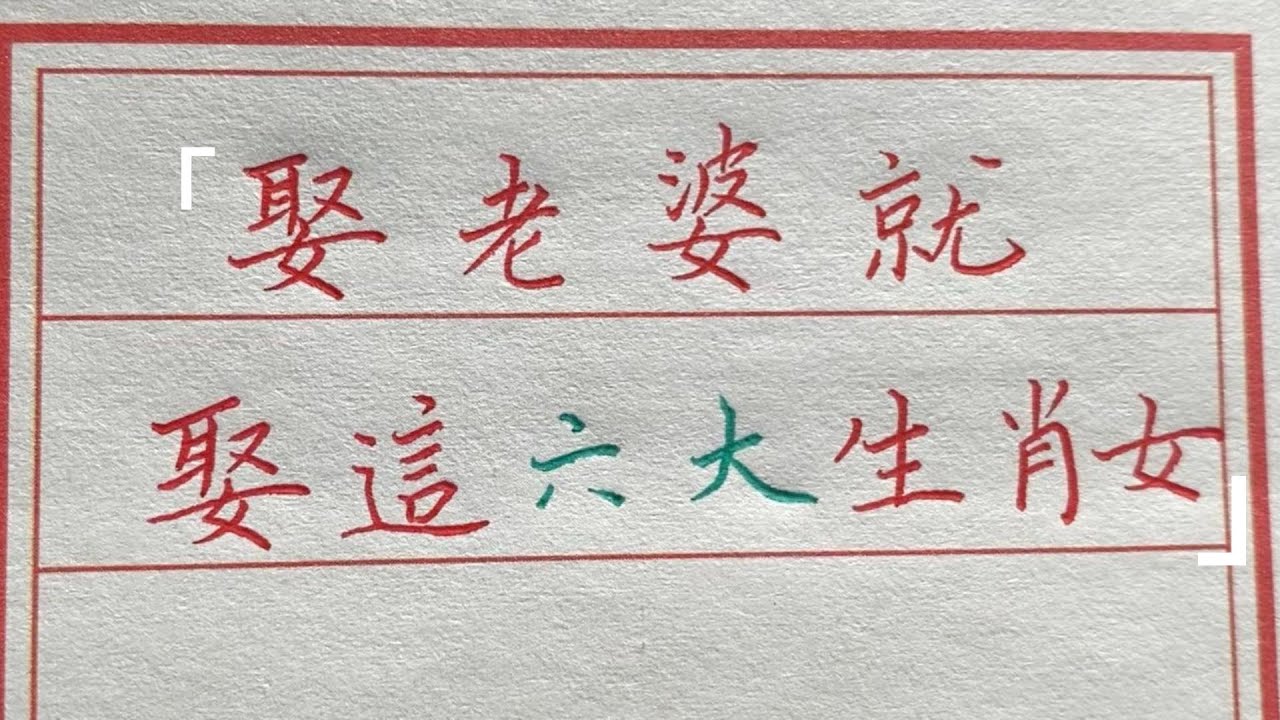 「娶老婆就
娶這六大生肖女」